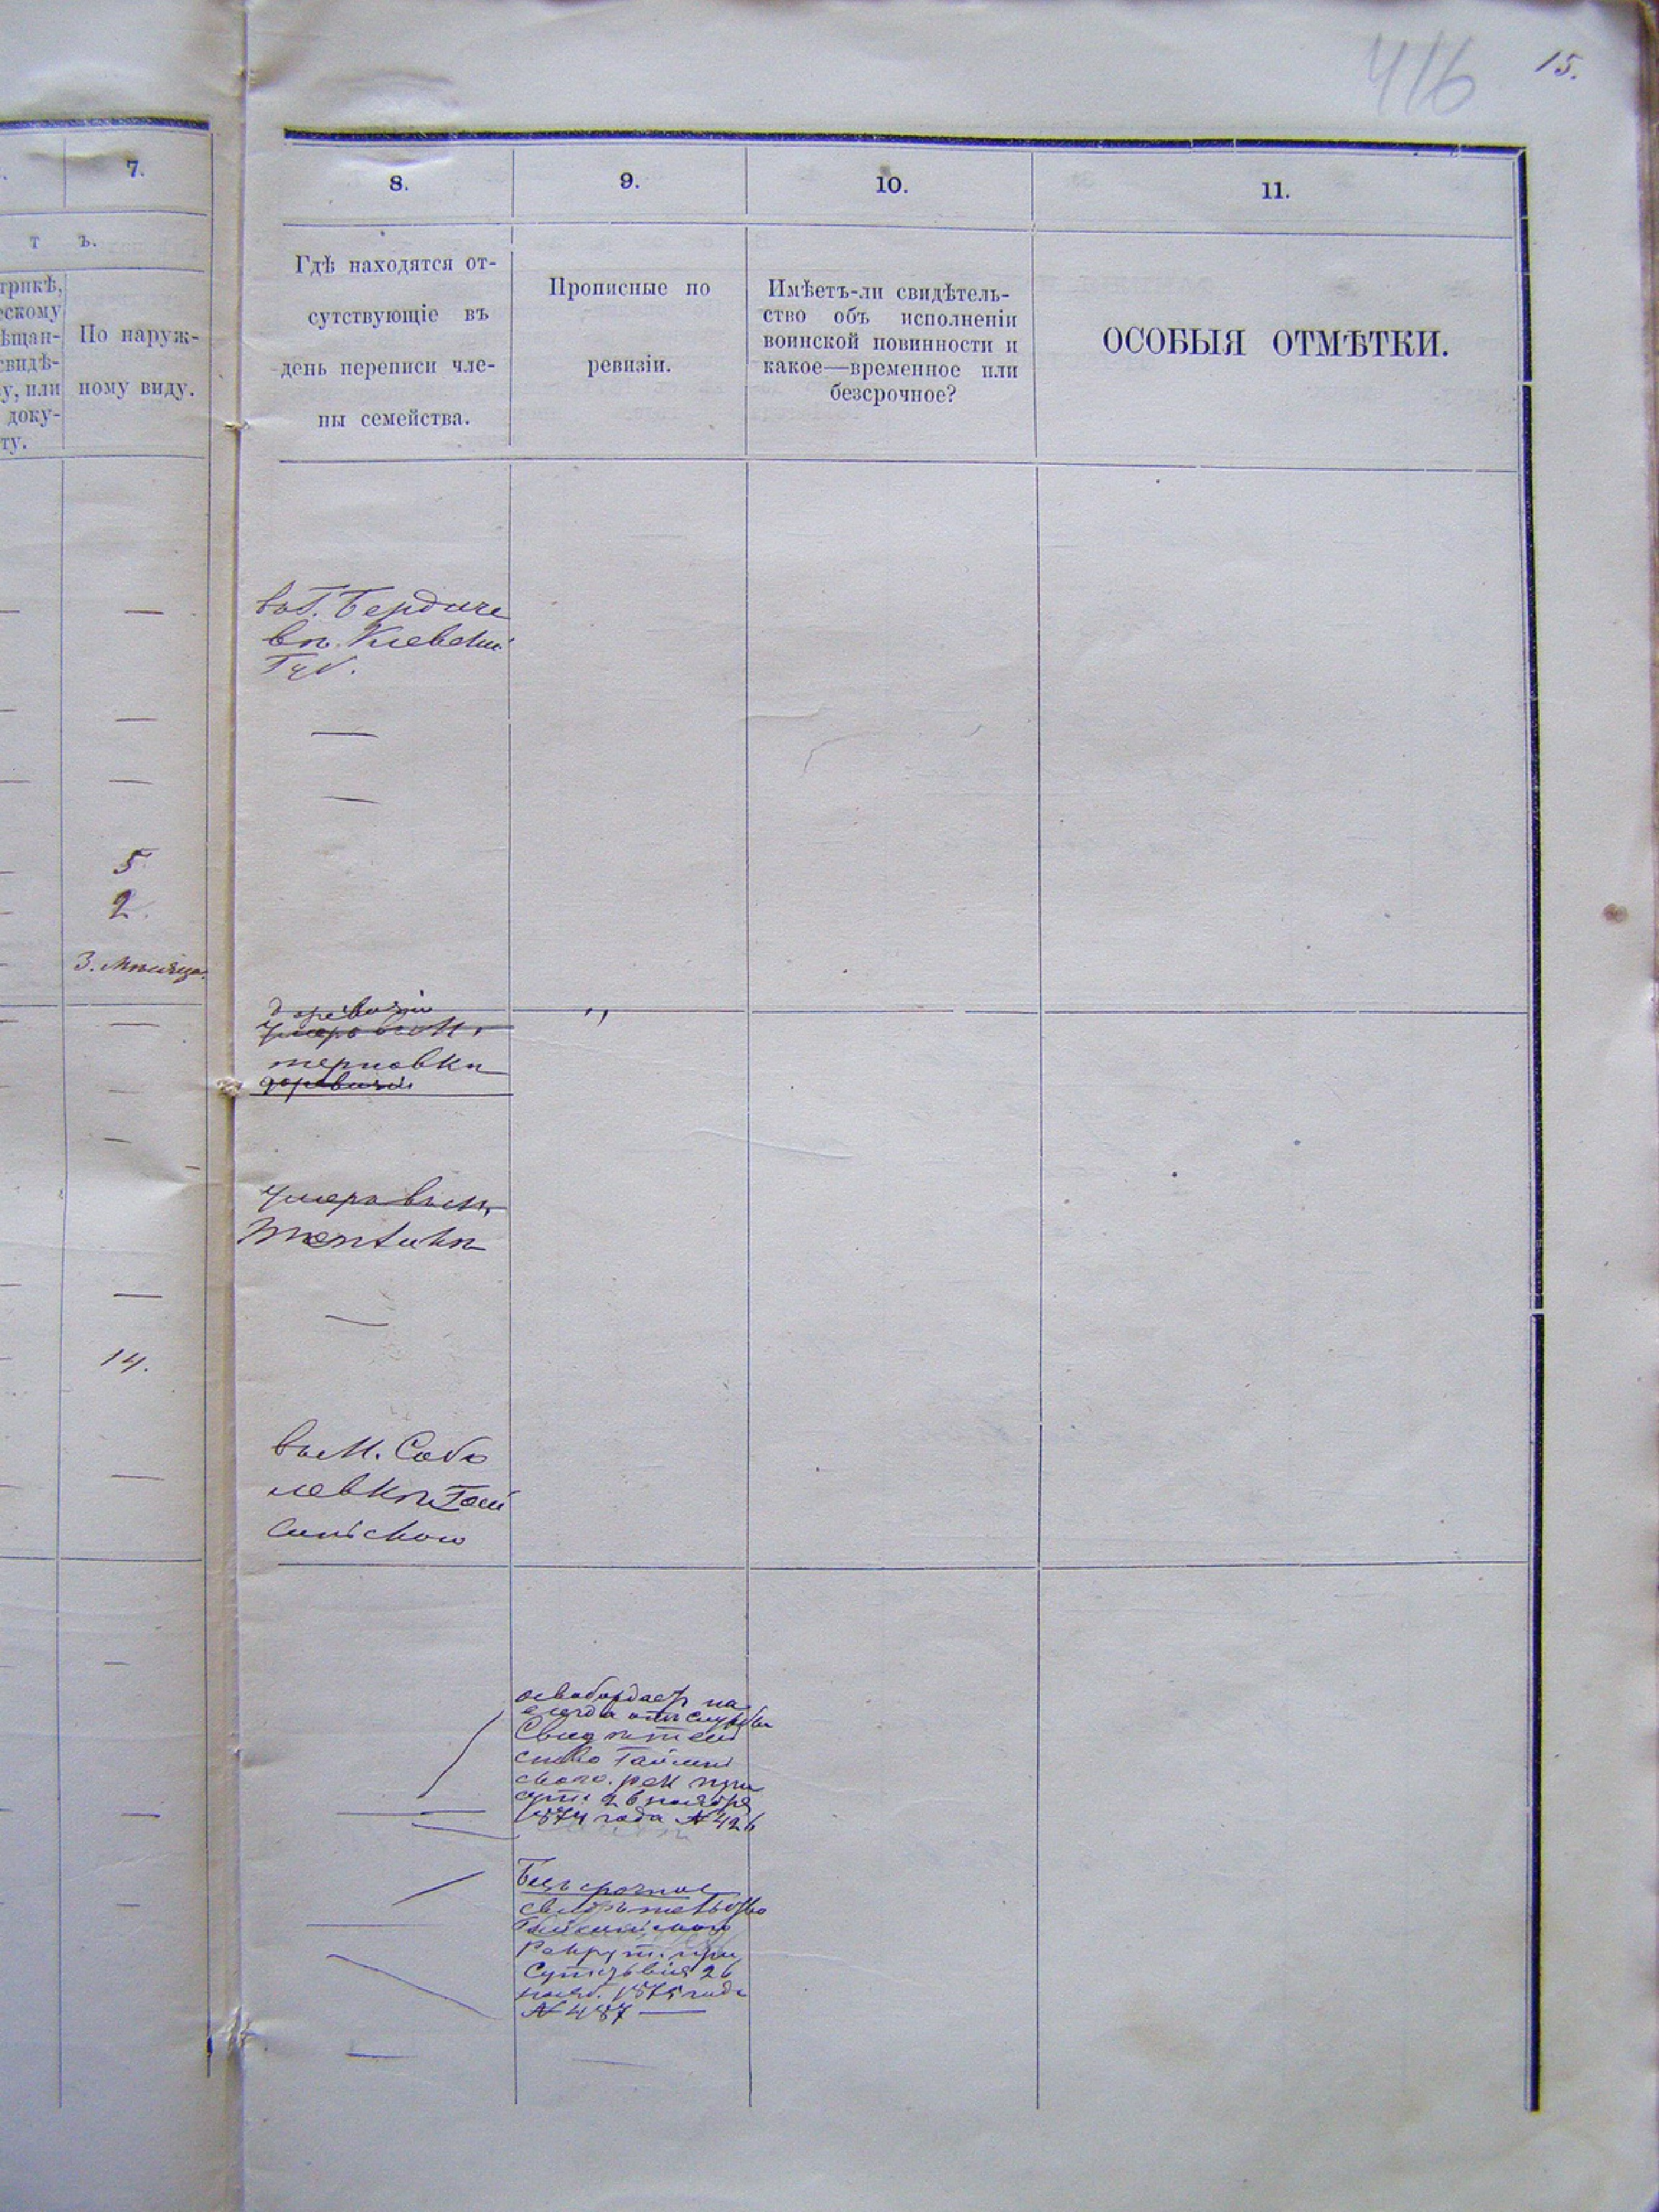 416
15.
7.
8.
9.
10.
11.
т ъ.
трикѣ,
ескому
ѣщан-
свидѣ-
у, или
доку-
ту.
По наруж-
ному виду.
Гдѣ находятся от-
сутствующіе въ
день переписи чле-
ны семейства.
Прописные по
ревизіи.
Имѣетъ-ли свидѣтель-
ство объ исполненіи
воинской повинности и
какое—временное или
безсрочное?
ОСОБЫЯ ОТМѢТКИ.
въ Г. Бердиче
вѣ. Кіевской
Губ.
5
2.
3. мѣсяца.
доревизіи
терновки
доревизіи
14.
въ М. Собо
левкѣ Гай
синскою
на
Свидѣтель
ство Гайсин
скаго. рек при
сутс 26 ноября
1874 года №426
Безъ срочное
свидѣтельство
Гайсинскаго
Рекрут. при
сутствія 26
нояб. 1875 года
№ 487